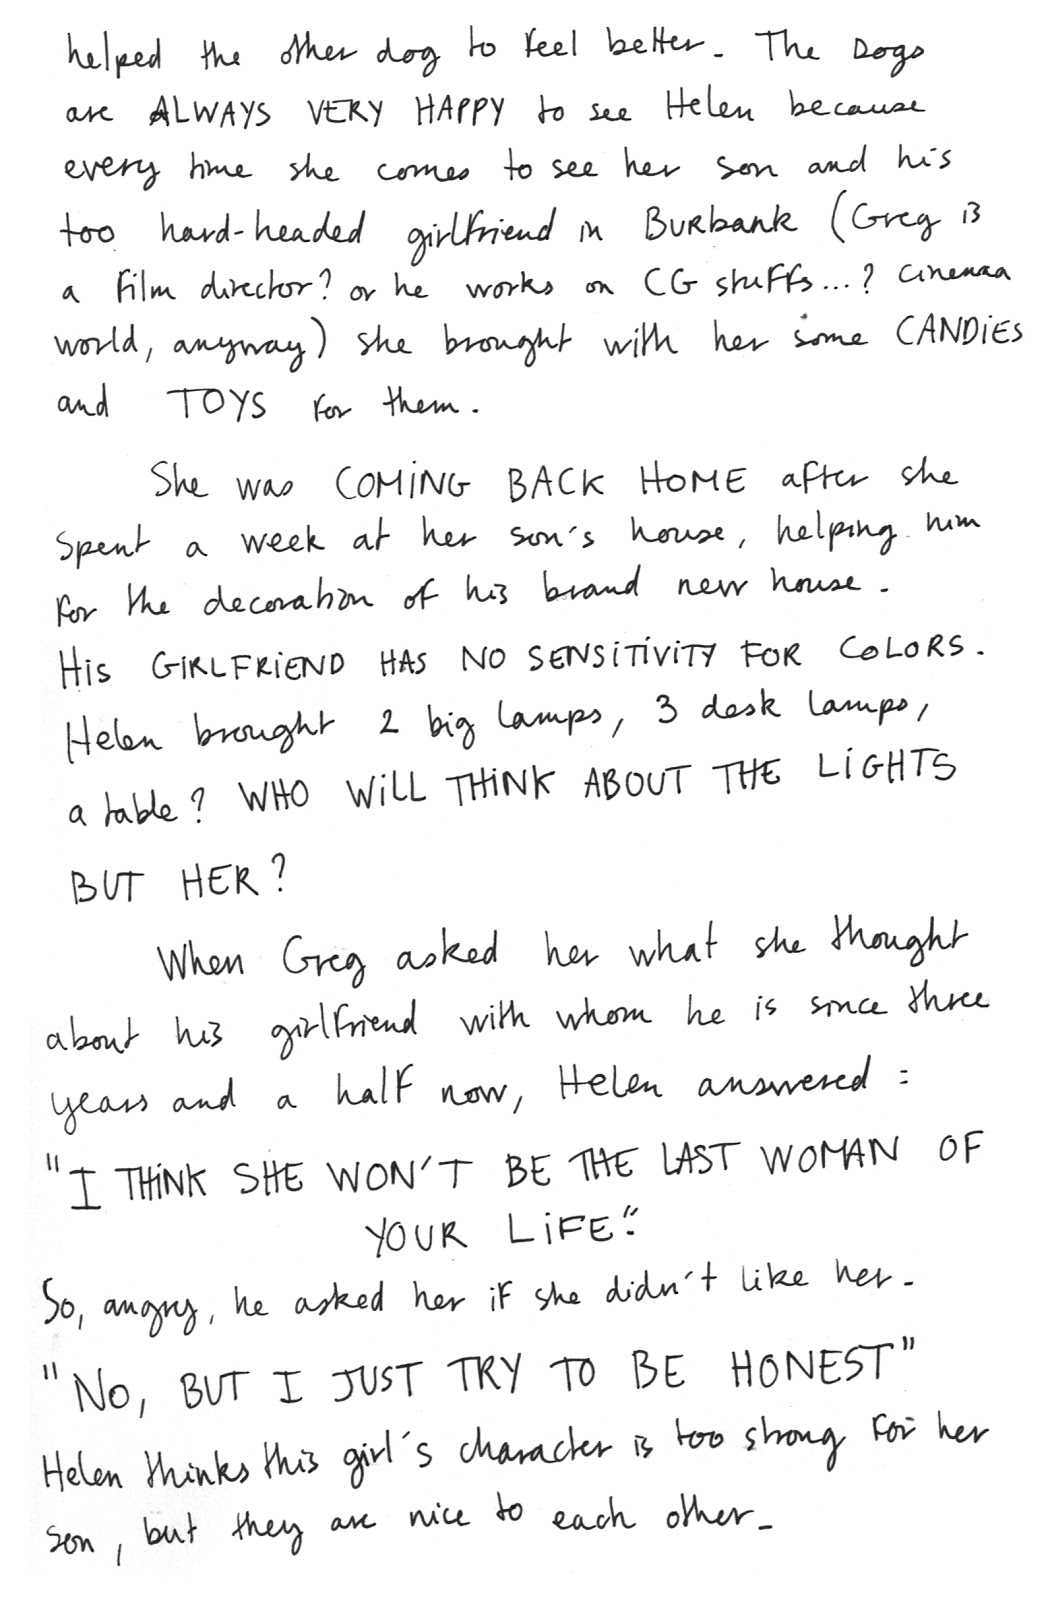 helped the other dog to feel better. The Dogs
are ALWAYS VERY HAPPY to see Helen because
every time she comes to see her son and his
too hard-headed girlfriend in Burbank (Greg is
a film director? or he works on CG stuffs...? cinemaa
world, anyway) she brought with her some CANDIES
and TOYS for them.
She was COMING BACK HOME after she
spent a week at her son's house, helping him
for the decoration of his brand new house.
His GIRLFRIEND HAS NO SENSITIVITY FOR COLORS.
Helen brought 2 big lamps, 3 desk lamps,
a table? WHO WILL THINK ABOUT THE LIGHTS
BUT HER?
When Greg asked her what she thought
about his girlfriend with whom he is since three
years and a half now, Helen answered:
"I THINK SHE WON'T BE THE LAST WOMAN OF
YOUR LIFE."
So, angry, he asked her if she didn't like her.
"NO, BUT I JUST TRY TO BE HONEST"
Helen thinks this girl's character is too strong for her
son, but they are nice to each other.